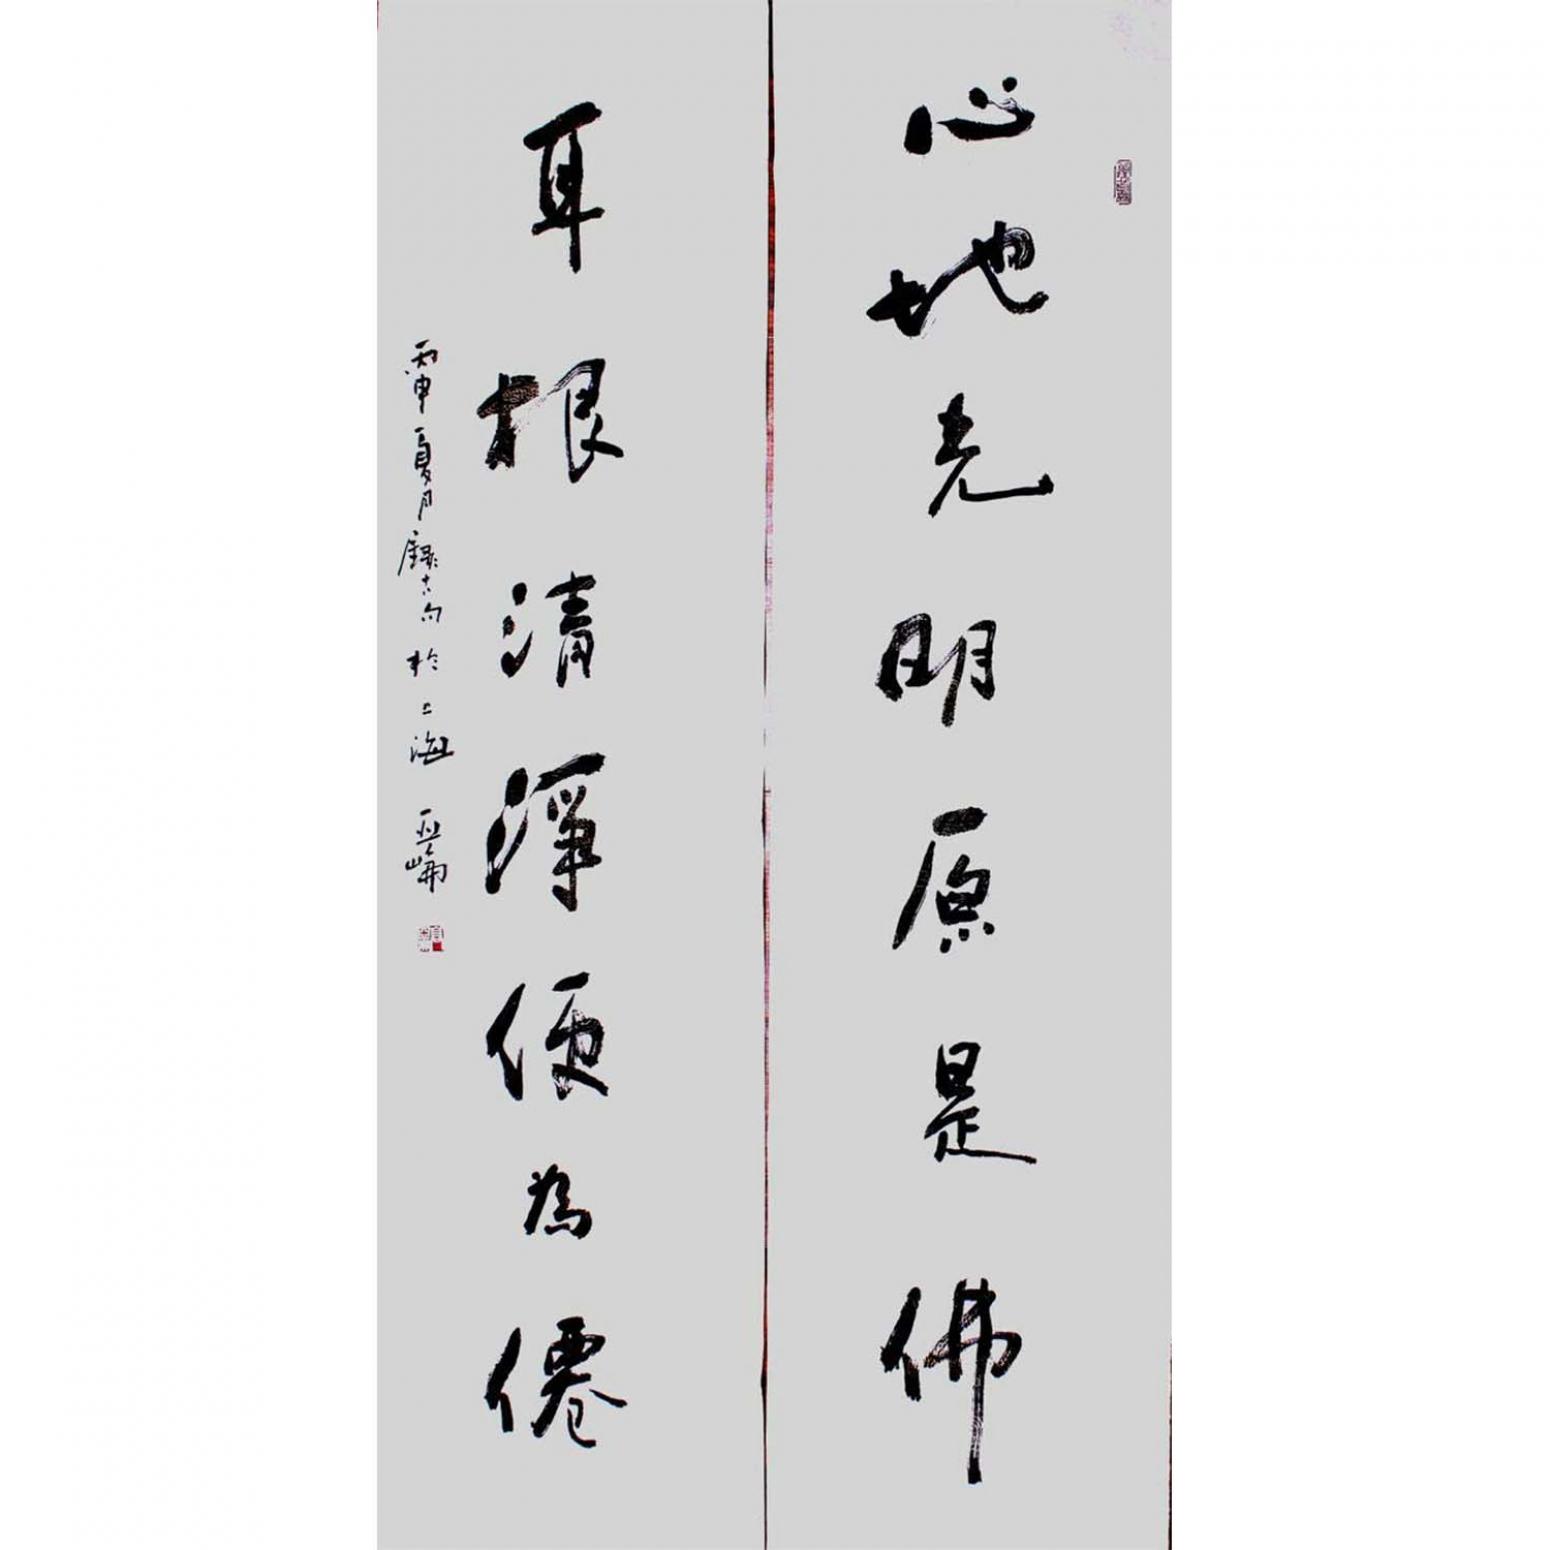 心地光明原是佛
耳根清淨便為僊
丙申夏月錄古句於上海 亚崙